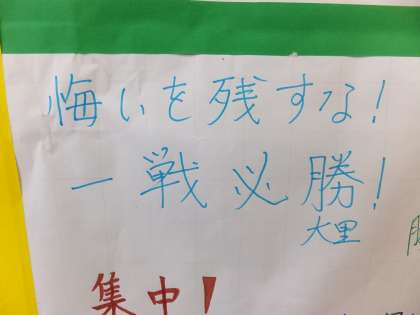 悔いを残すな!
一戦必勝!
大里
集中!